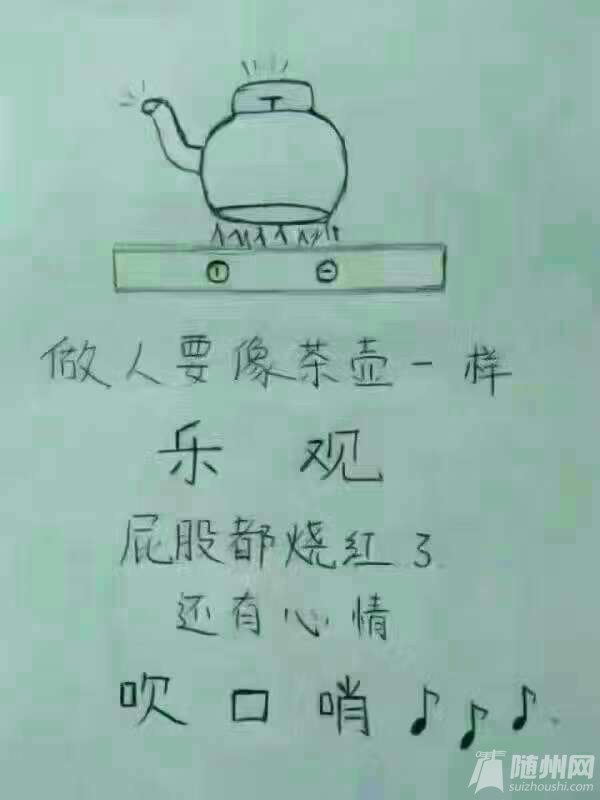 做人要像茶壶一样
乐观
屁股都烧红了
还有心情
吹口哨♪♪♪
随州网
suizhoushi.com